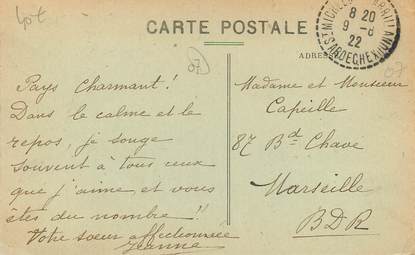 40€
CARTE POSTALE
8 20
9 - 8
22
ARDECHE
07
ADRES
07
Pays Charmant !
Dans le calme et le
repos, je songe
souvent à tous ceux
que j'aime et vous
êtes du nombre !!
Votre sœur affectionnée
Jeanne
Madame et Monsieur
Capeille
87 Bd Chave
Marseille
BDR